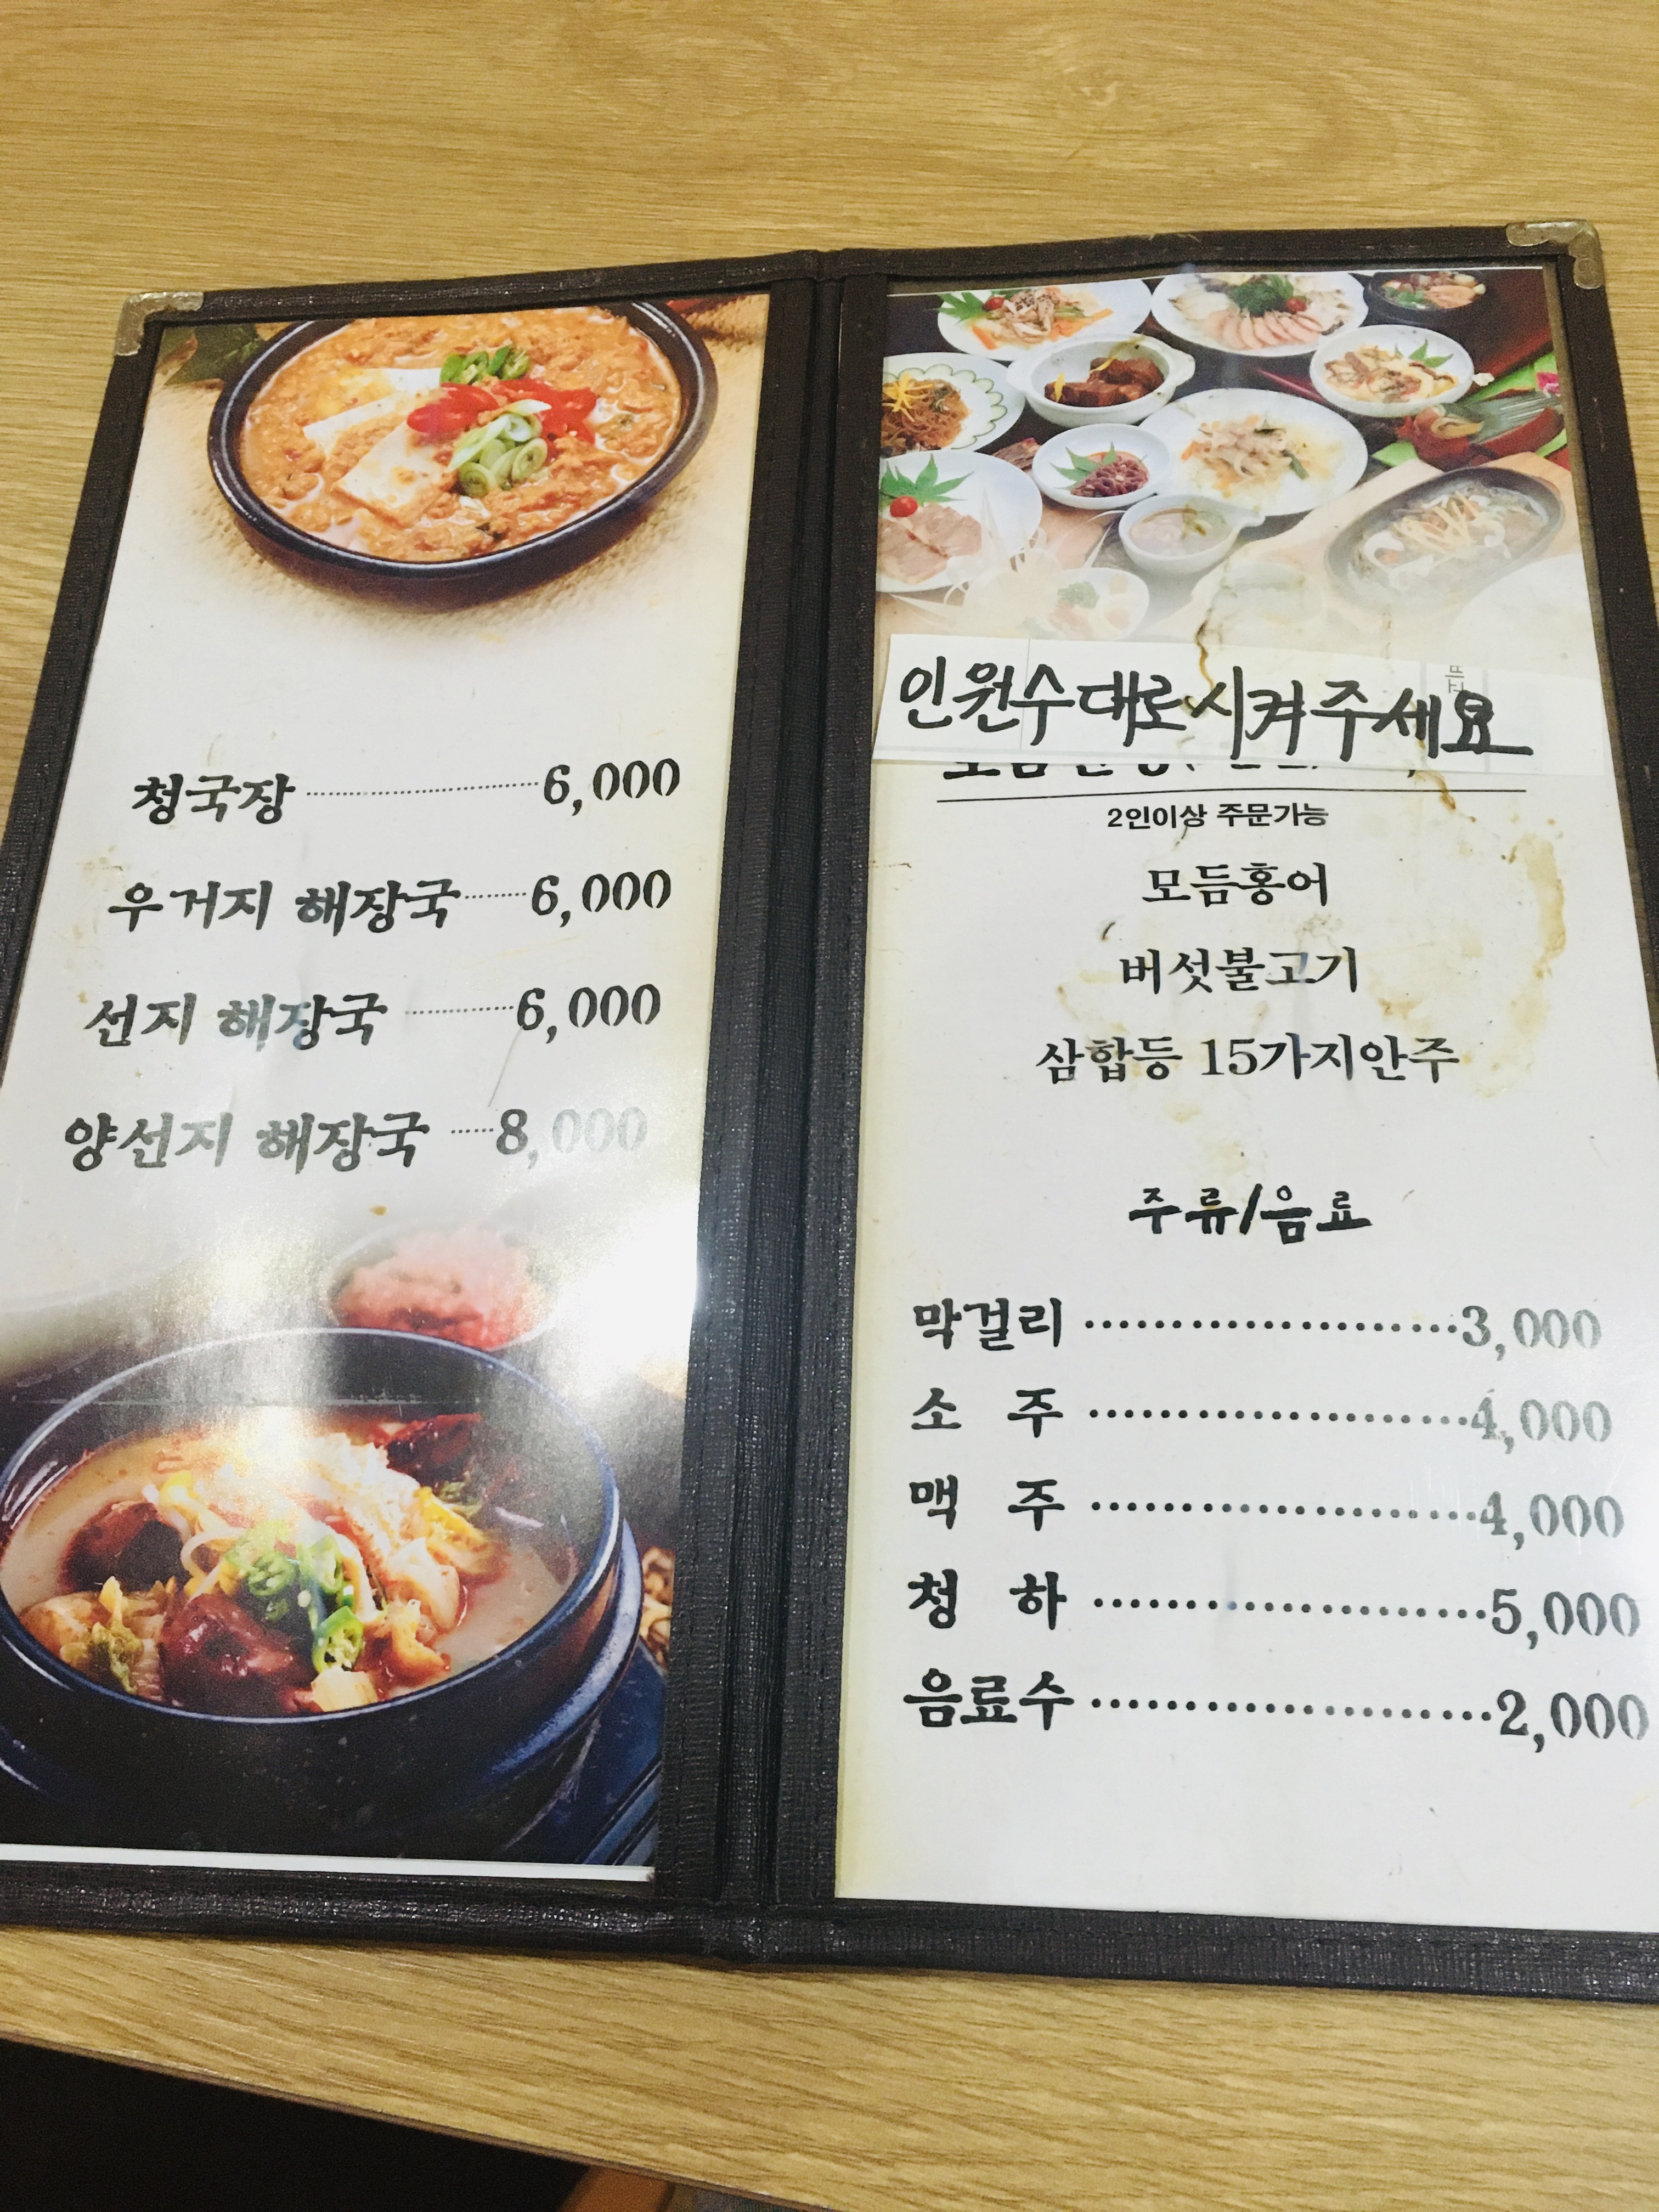 청국장 6,000
우거지 해장국 6,000
선지 해장국 6,000
양선지 해장국 8,000
인원수대로시켜주세요
2인이상 주문가능
모듬홍어
버섯불고기
삼합등 15가지안주
주류/음료
막걸리 3,000
소주 4,000
맥주 4,000
청하 5,000
음료수 2,000